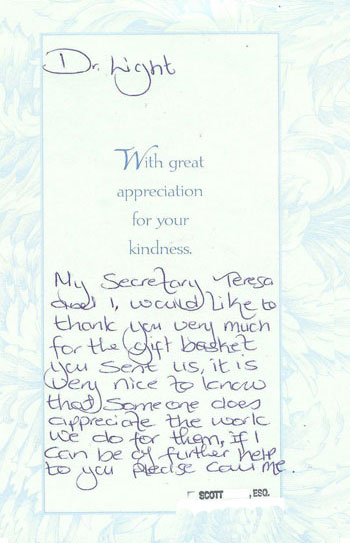 Dr. Light
With great
appreciation
for your
kindness.
My Secretary Teresa
and I, would like to
thank you very much
for the gift basket
you sent us, it is
very nice to know
that someone does
appreciate the work
we do for them, if I
can be of further help
to you please call me.
SCOTT , ESQ.